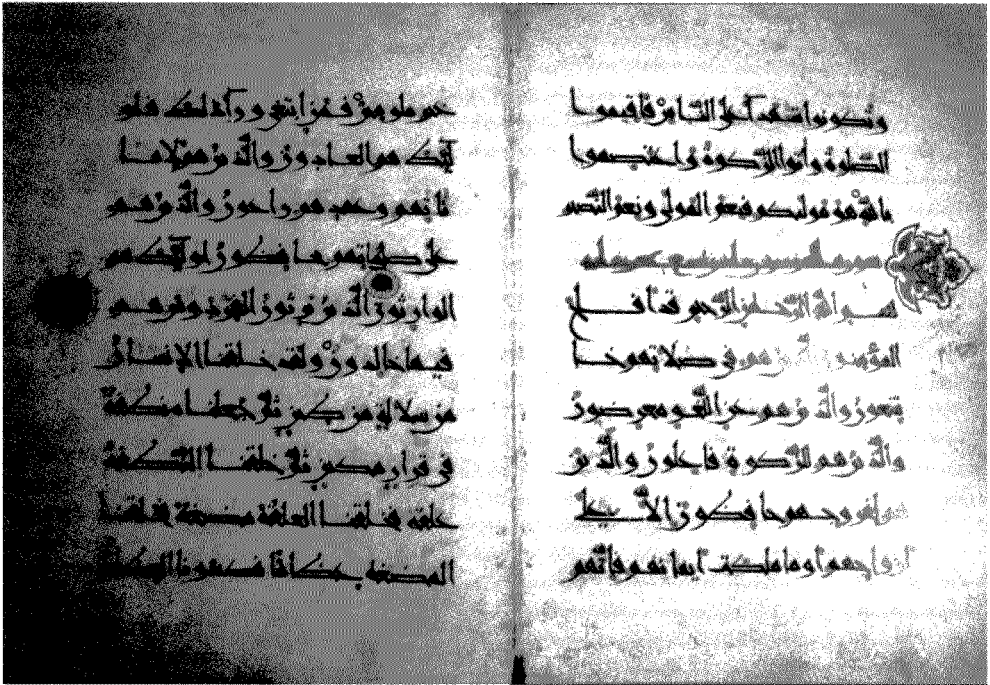 وتكونوا شهدآ على الناس فاقيموا
الصلوة وأتوا الزكوة واعتصموا
بالله هو موليكم فنعم المولى ونعم النصير
سورة المؤمنون
بسم الله الرحمن الرحيم قد افلح
المؤمنون الذين هم في صلاتهم خا
شعون والذين هم عن اللغو معرضون
والذين هم للزكوة فاعلون والذين
هم لفروجهم حافظون الا على
ازواجهم أو ما ملكت أيمانهم فانهم
غير ملومين فمن ابتغى ورآء ذلك فاو
لئك هم العادون والذين هم لاما
ناتهم وعهدهم راعون والذين هم
على صلواتهم يحافظون اولئك هم
الوارثون الذين يرثون الفردوس هم
فيها خالدون ولقد خلقنا الإنسان
من سلالة من طين ثم جعلناه نطفة
في قرار مكين ثم خلقنا النطفة
علقة فخلقنا العلقة مضغة فخلقنا
المضغة عظاما فكسونا العظام